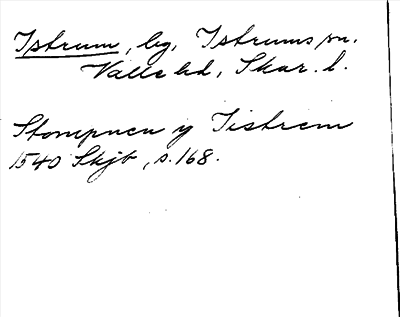 Istrum, by, Istrums sn.
Valle hd, Skar. l.
Stompnen y Tistrem
1540 Skjb, s. 168.